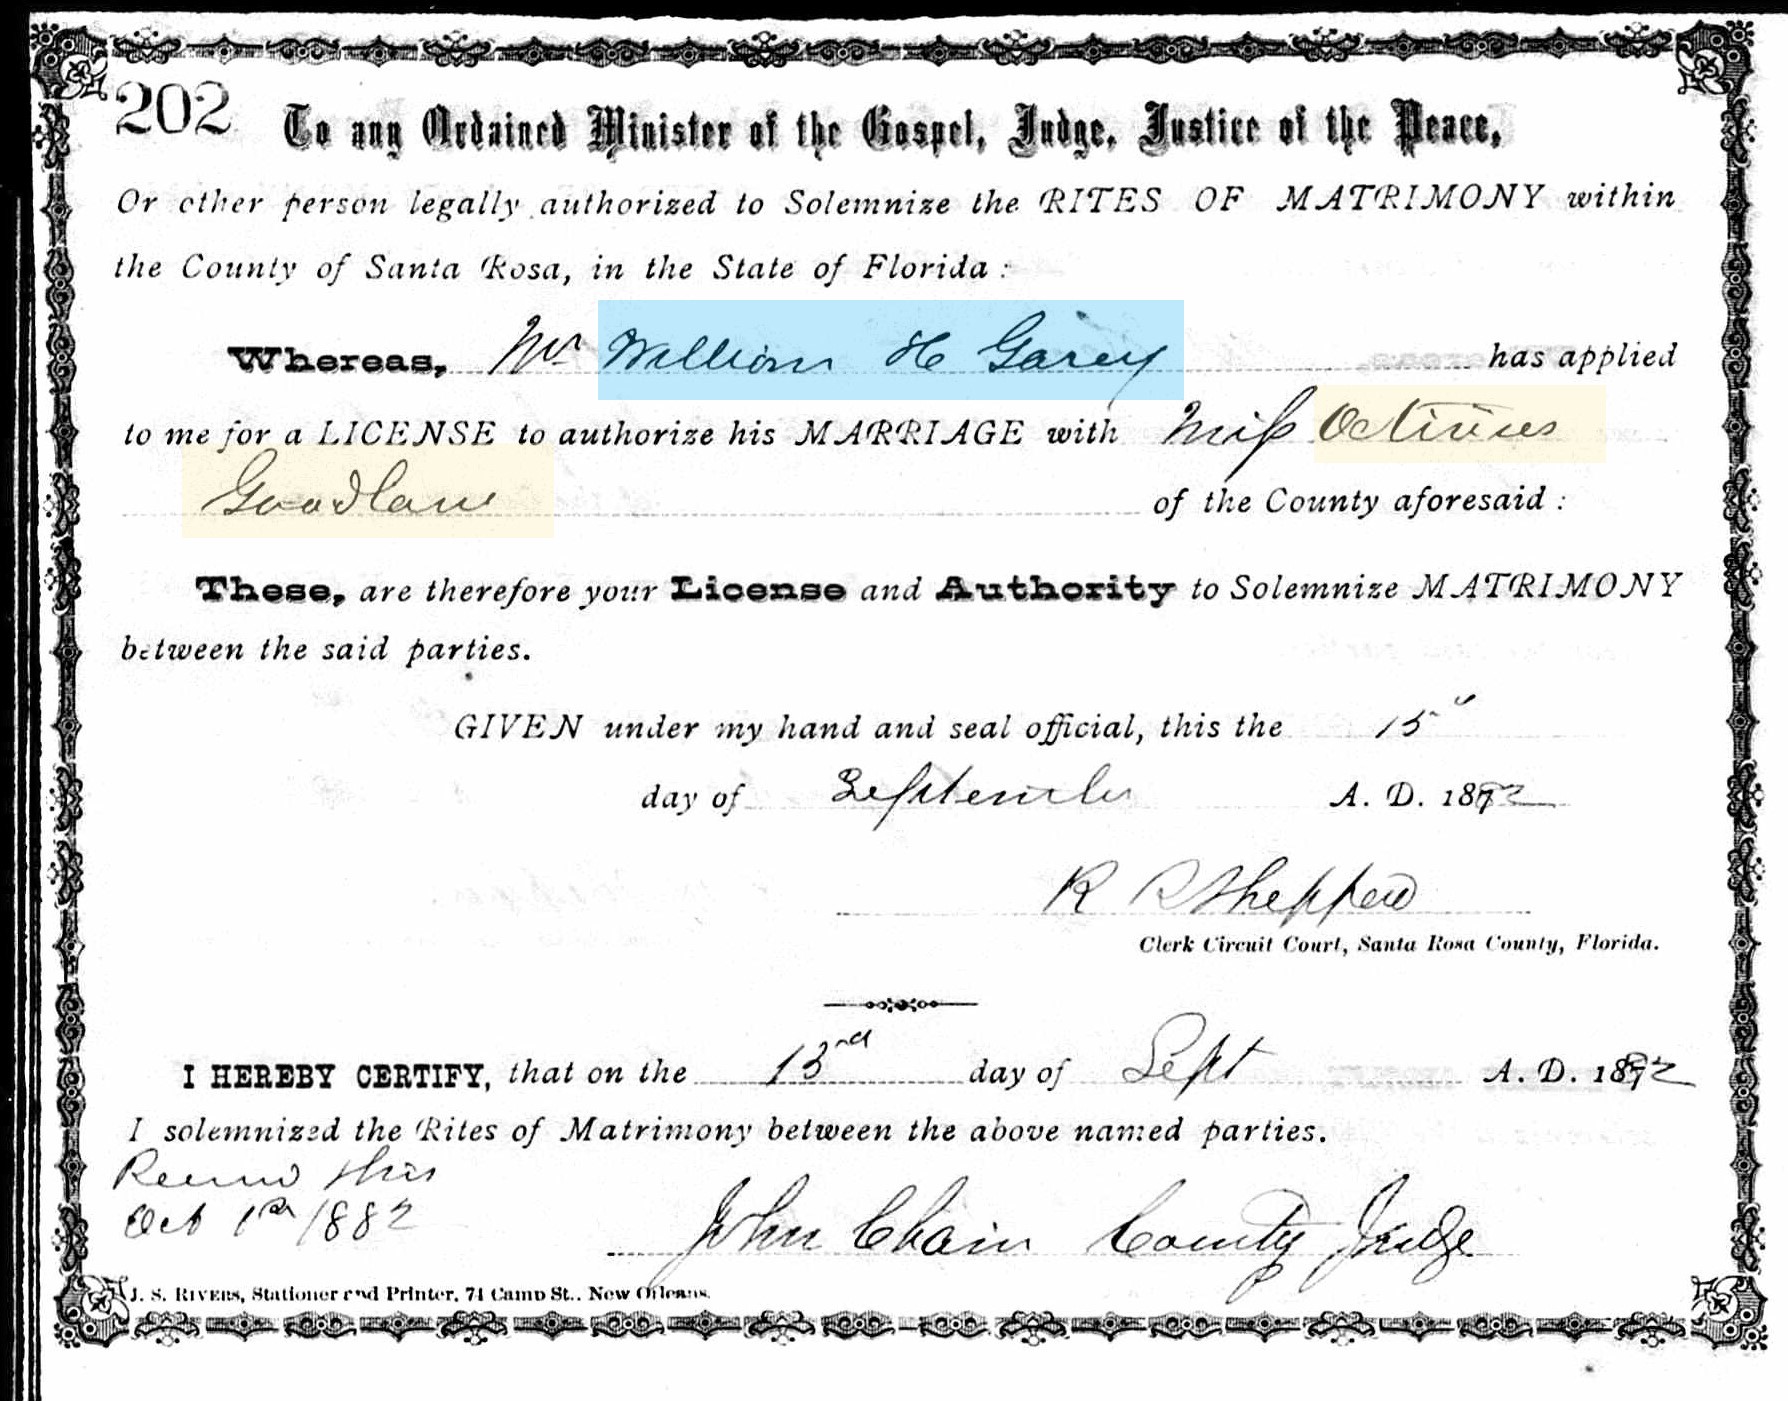 202 To any Ordained Minister of the Gospel, Judge, Justice of the Peace,
Or other person legally authorized to Solemnize the RITES OF MATRIMONY within
the County of Santa Rosa, in the State of Florida :
Whereas, Mr William H Garey has applied
to me for a LICENSE to authorize his MARRIAGE with Miss
of the County aforesaid :
These, are therefore your License and Authority to Solemnize MATRIMONY
between the said parties.
GIVEN under my hand and seal official, this the 15
day of September A. D. 1882
R R Sheppard
Clerk Circuit Court, Santa Rosa County, Florida.
I HEREBY CERTIFY, that on the day of Sept A. D. 1882
I solemnized the Rites of Matrimony between the above named parties.
this
Oct 1st 1882
John Chain County Judge
J. S. RIVERS, Stationer and Printer, 74 Camp St., New Orleans.